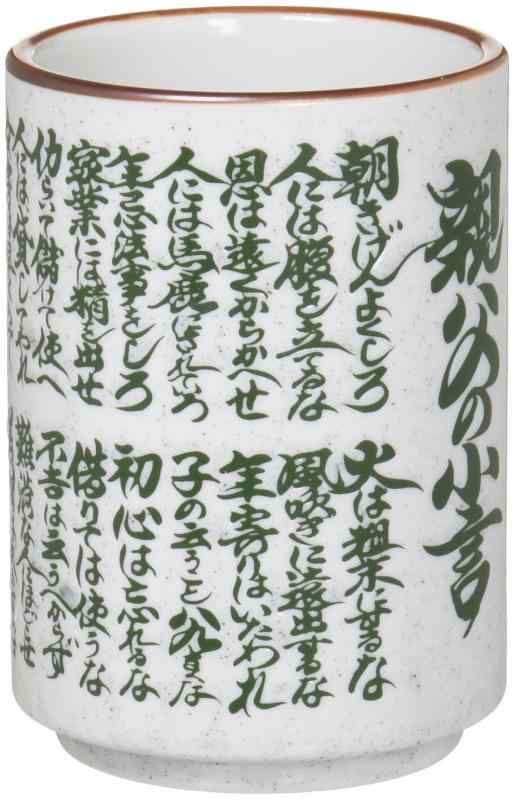 親父の小言
朝きげんよくしろ
人には腹を立てるな
恩は遠くからかへせ
人には馬鹿にされていろ
年忌法事をしろ
家業には精を出せ
働らいて儲けて使へ
人には貸してやれ
火は粗末にするな
風吹きに遠出するな
年寄りはいたわれ
子の云うこと八九きくな
初心は忘れるな
借りては使うな
不吉は云うべからず
難渋な人にほどこせ